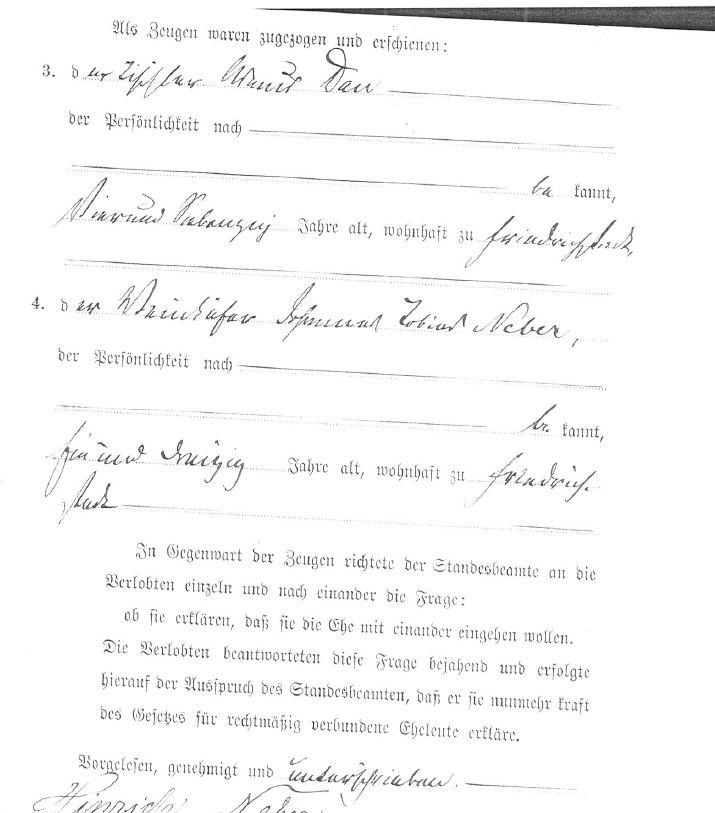 Als Zeugen waren zugezogen und erschienen:
3. der Tischler Claus Dau
der Persönlichkeit nach
be kannt,
Vierund Siebenzig Jahre alt, wohnhaft zu Friedrichstadt,
4. der Johannes Tobias Neber,
der Persönlichkeit nach
be kannt,
und dreißig Jahre alt, wohnhaft zu Friedrich-
stadt
In Gegenwart der Zeugen richtete der Standesbeamte an die
Verlobten einzeln und nach einander die Frage:
ob sie erklären, daß sie die Ehe mit einander eingehen wollen.
Die Verlobten beantworteten diese Frage bejahend und erfolgte
hierauf der Ausspruch des Standesbeamten, daß er sie nunmehr kraft
des Gesetzes für rechtmäßig verbundene Eheleute erkläre.
Vorgelesen, genehmigt und unterschrieben.
Hinrich